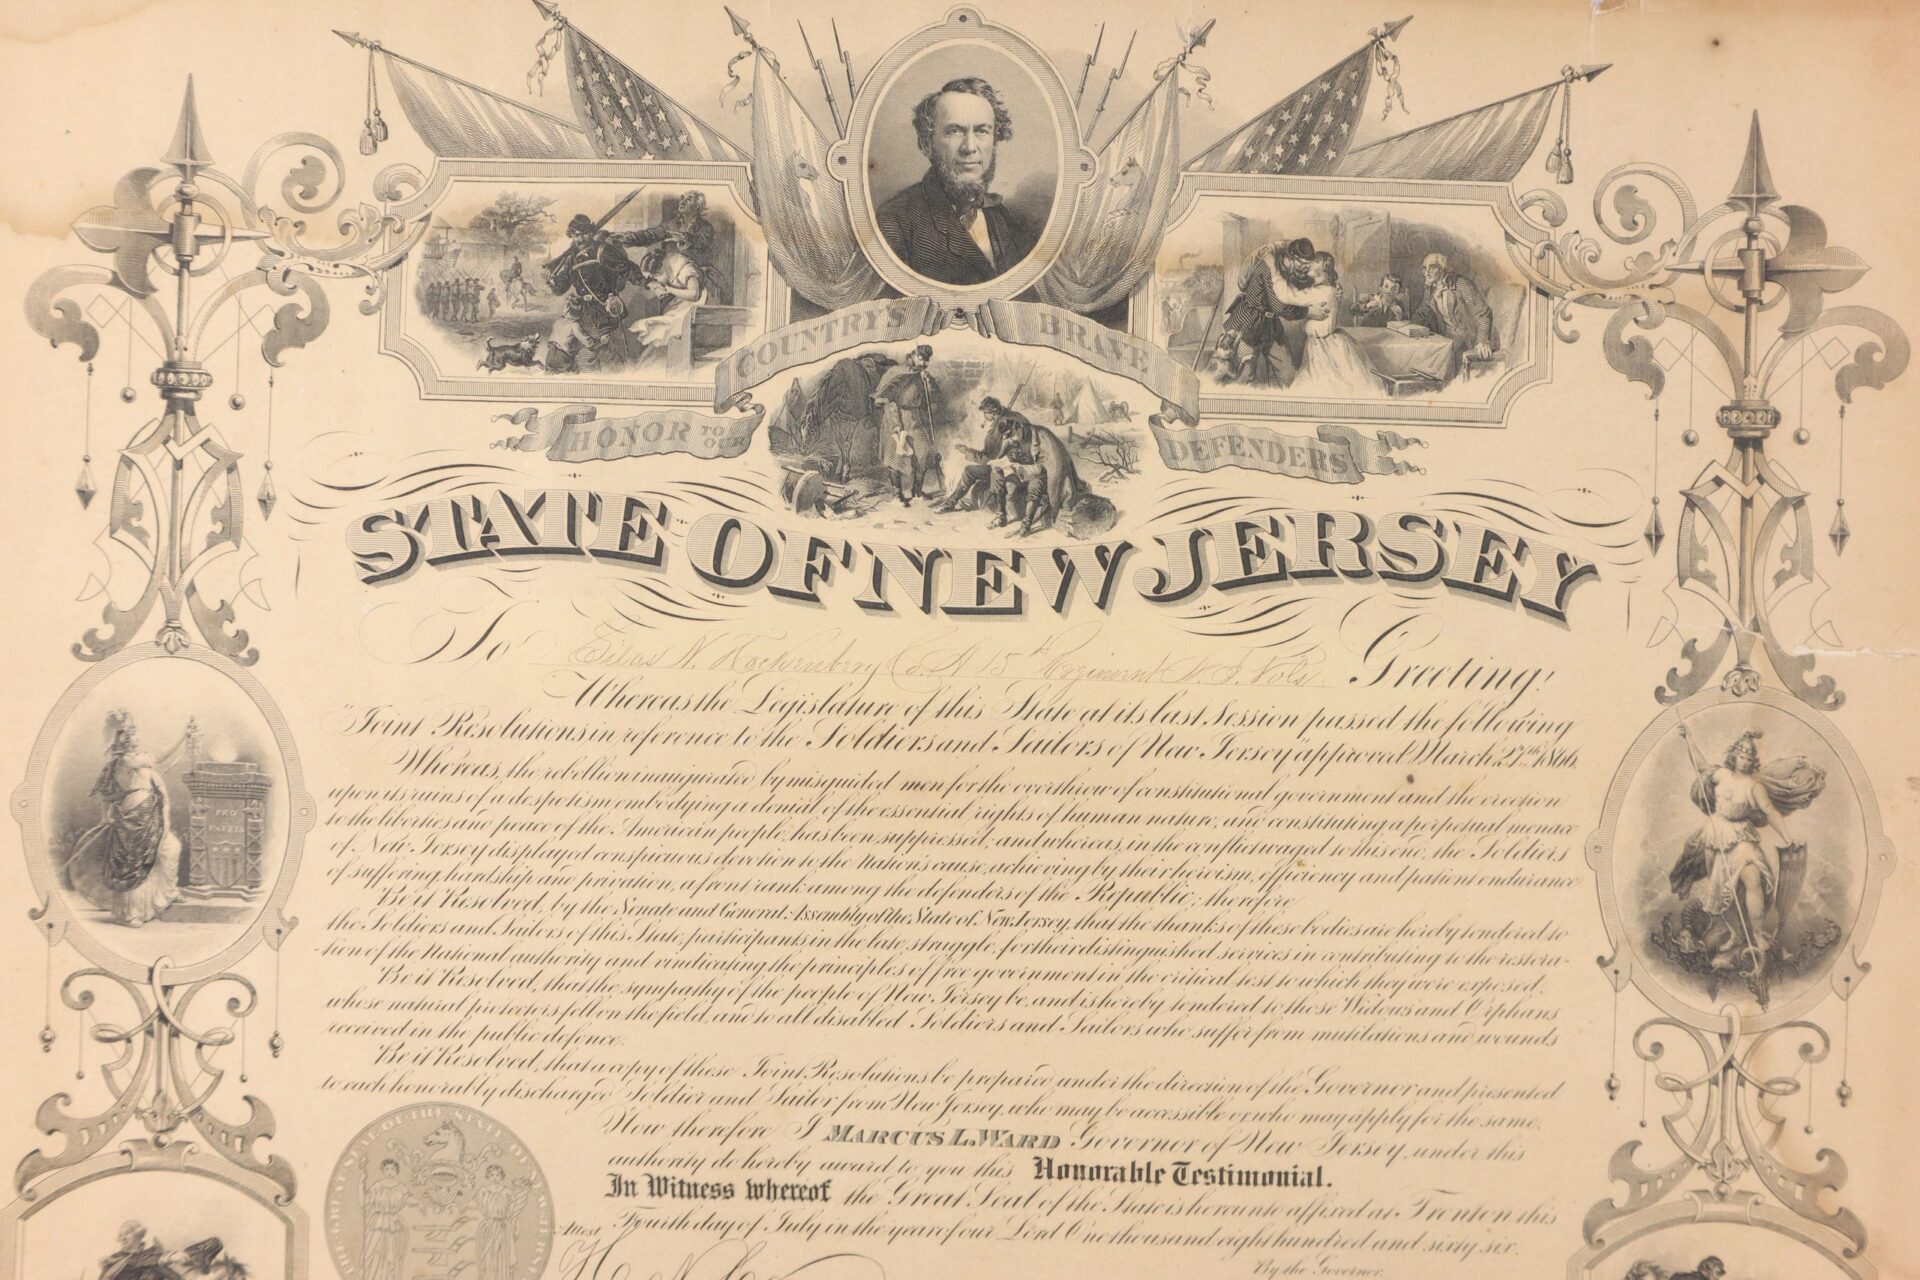 COUNTRY'S BRAVE
HONOR TO OUR DEFENDERS
STATE OF NEW JERSEY
To Silas N. Hockenberg Co. A 15th Regiment N. J. Vols. Greeting!
Whereas the Legislature of this State at its last Session passed the following
"Joint Resolutions in reference to the Soldiers and Sailors of New Jersey approved March 27th 1866.
Whereas, the rebellion inaugurated by misguided men for the overthrow of constitutional government and the erection
upon its ruins of a despotism embodying a denial of the essential rights of human nature, and constituting a perpetual menace
to the liberties and peace of the American people, has been suppressed; and whereas, in the conflict waged to this end, the Soldiers
of New Jersey displayed conspicuous devotion to the Nation's cause, achieving by their heroism, efficiency and patient endurance
of suffering, hardship and privation, a front rank among the defenders of the Republic; therefore
Be it Resolved, by the Senate and General Assembly of the State of New Jersey, that the thanks of these bodies are hereby tendered to
the Soldiers and Sailors of this State, participants in the late struggle, for their distinguished services in contributing to the restora-
-tion of the National authority and vindicating the principles of free government in the critical test to which they were exposed.
Be it Resolved, that the sympathy of the people of New Jersey be, and is hereby tendered to those Widows and Orphans
whose natural protectors fell on the field, and to all disabled Soldiers and Sailors who suffer from mutilations and wounds
received in the public defence.
Be it Resolved, that a copy of these Joint Resolutions be prepared under the direction of the Governor and presented
to each honorably discharged Soldier and Sailor from New Jersey, who may be accessible or who may apply for the same.
Now therefore I MARCUS L. WARD Governor of New Jersey, under this
authority do hereby award to you this Honorable Testimonial.
In Witness whereof the Great Seal of the State is hereunto affixed at Trenton this
Fourth day of July in the year of our Lord One thousand eight hundred and sixty six.
By the Governor.
Attest
PRO
PATRIA
THE GREAT SEAL OF THE STATE OF NEW JERSEY